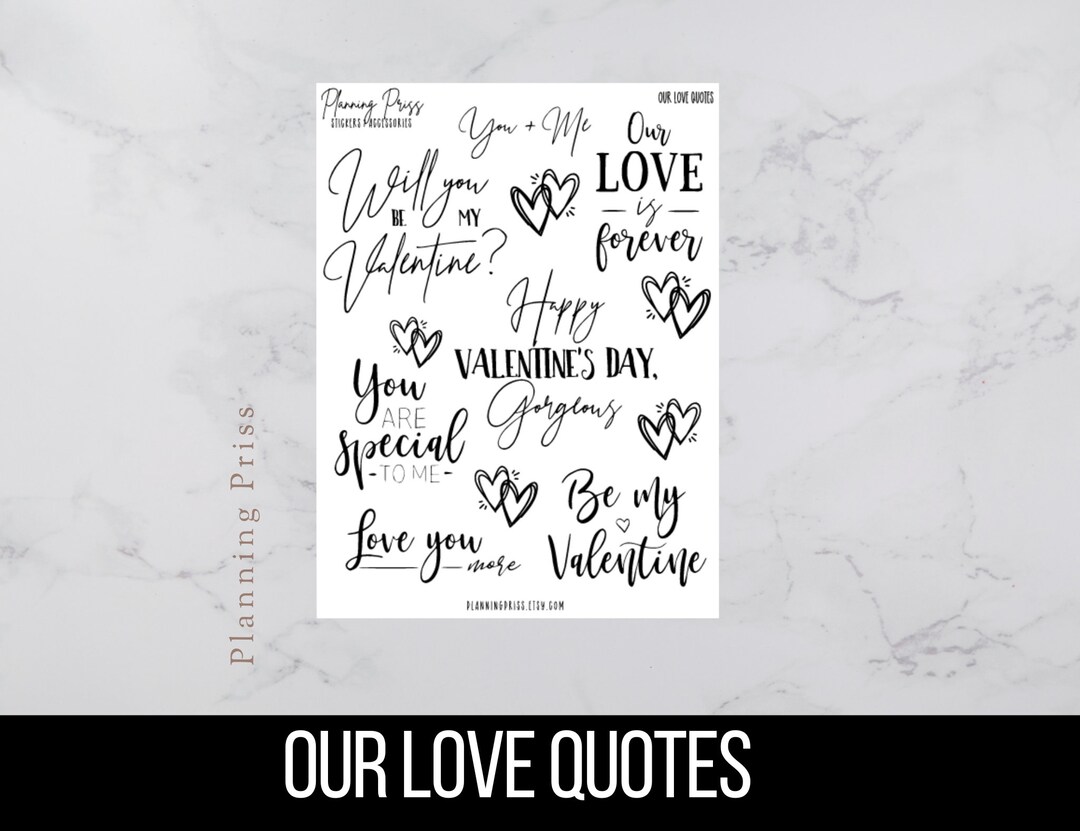 Planning Priss
STICKERS + ACCESSORIES
OUR LOVE QUOTES
You + Me
Will you
BE MY
Valentine?
Our
LOVE
is
forever
Happy
VALENTINE'S DAY,
Gorgeous
You
ARE
special
-TO ME-
Be my
Valentine
Love you
more
PLANNINGPRISS.ETSY.COM
Planning Priss
OUR LOVE QUOTES